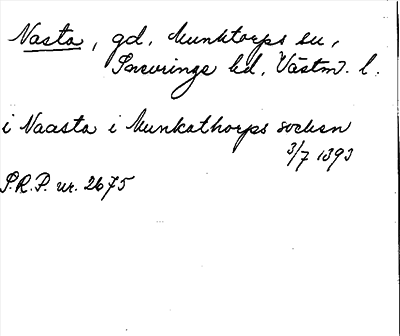 Nasta, gd, Munktorps sn,
Snevringe hd, Västm. l.
i Naasta i Munkathorps socken
3/7 1393
S.R.P. nr. 2675